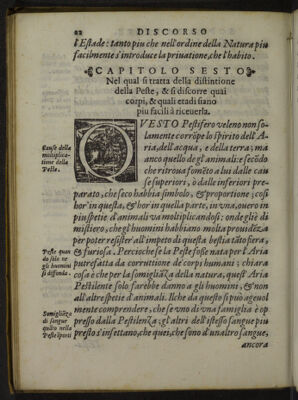 22 DISCORSO
l'Estade: tanto piu che nell'ordine della Natura piu
facilmente s'introduce la priuatione, che l'habito.
CAPITOLO SESTO
Nel qual si tratta della distintione
della Peste, & si discorre quai
corpi, & quali etadi siano
piu facili à riceuerla.
QVESTO Pestifero veleno non so-
lamente corrõpe lo spirito dell'A-
ria, dell'acqua, e della terra; ma
anco quello de gl'animali: e secõdo
che ritroua fomẽto a lui dalle cau
se superiori, ò dalle inferiori pre-
parato, che seco habbia simbolo, & proportione; così
hor in questa, & hor in quella parte, in vna, ouero in
piu spetie d'animali va moltiplicandosi: onde gliè di
mistiero, che gl'huomini habbiano molta prouidẽza
per poter resister all'impeto di questa bestia tãto fiera,
& furiosa. Percioche se la Peste fosse nata per l'Aria
putrefatta da corruttione de corpi humani: chiara
cosa è che per la somigliãza della natura, quest'Aria
Pestilente solo farebbe danno a gli huomini, & non
all'altre spetie d'animali. Il che da questo si può ageuol
mente comprendere, che se vno di vna famiglia è op
presso dalla Pestilenza; gl'altri dell'istesso sangue piu
presto s'infettano, che quei, che sono d'un altro sangue,
ancora
Cause della
moltiplica-
tione della
Peste.
Peste quan
do solo ne
gli huomini
si diffonda.
Somigliãza
di sangue
quãto nella
Peste īporti